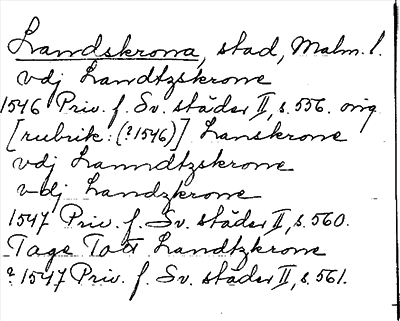 Landskrona, stad, Malm. l.
vdj Landtzskrone
1546 Priv. f. Sv. städer II, s. 556. orig.
[rubrik: (?1546)] Lanskrone
vdj Lanndtzskrone
vdj Landzkrone
1547 Priv. f. Sv. städer II, s. 560.
Tage Tott Landtzkrone
?1547 Priv. f. Sv. städer II, s. 561.